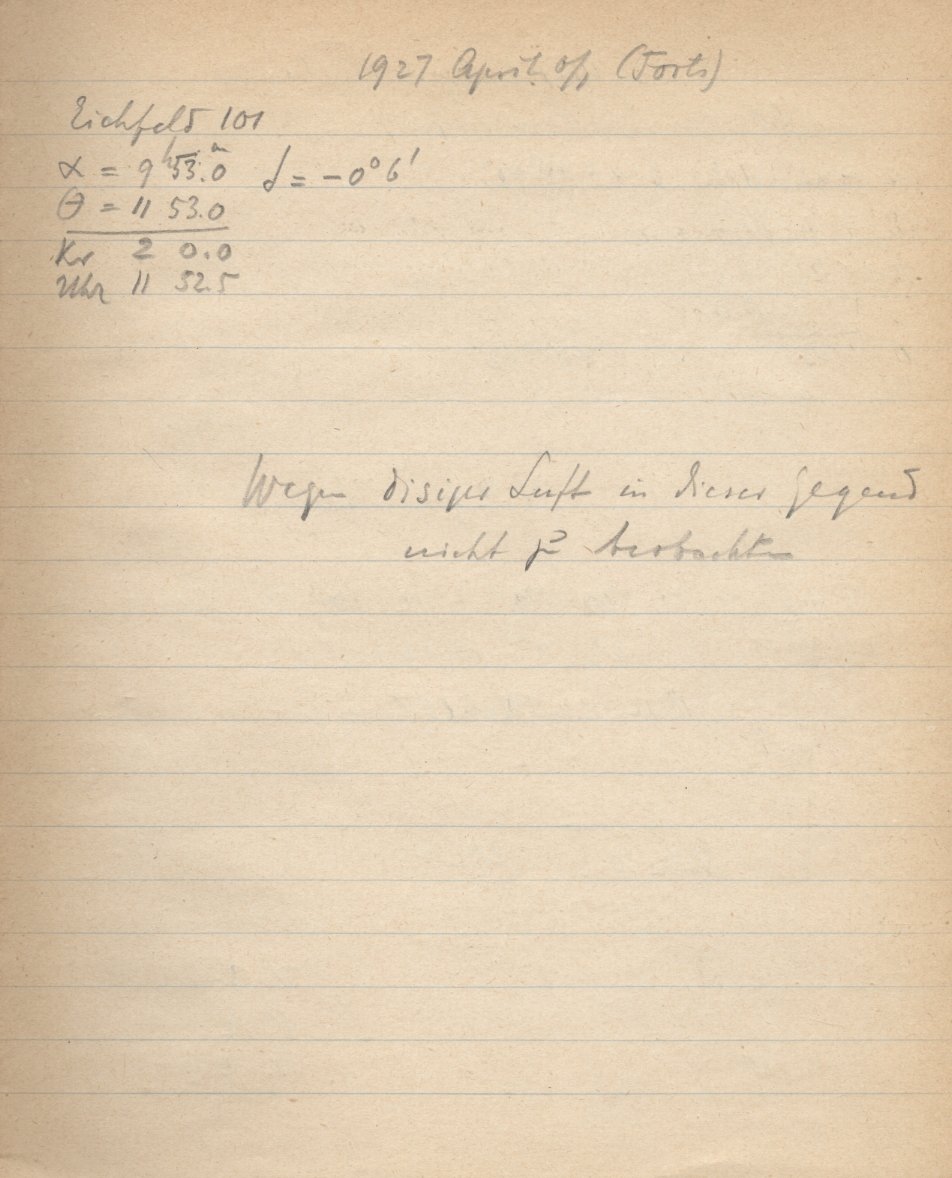 1927 April 0/1 (Forts)
Eichfeld 101
α = 9ʰ53.0ᵐ δ = −0°6′
Θ = 11 53.0
Kr 2 0.0
Uhr 11 52.5
Wegen disiger Luft in dieser Gegend
nicht zu beobachten